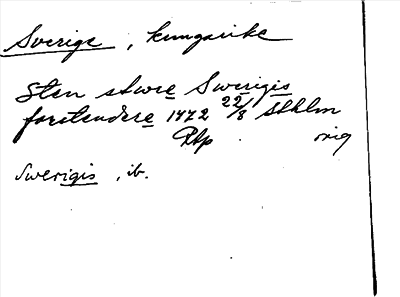 Sverige, kungarike
Sten sture Swerigis
forstandere 1472 22/8 Sthlm
RAp orig
Swerigis, ib.